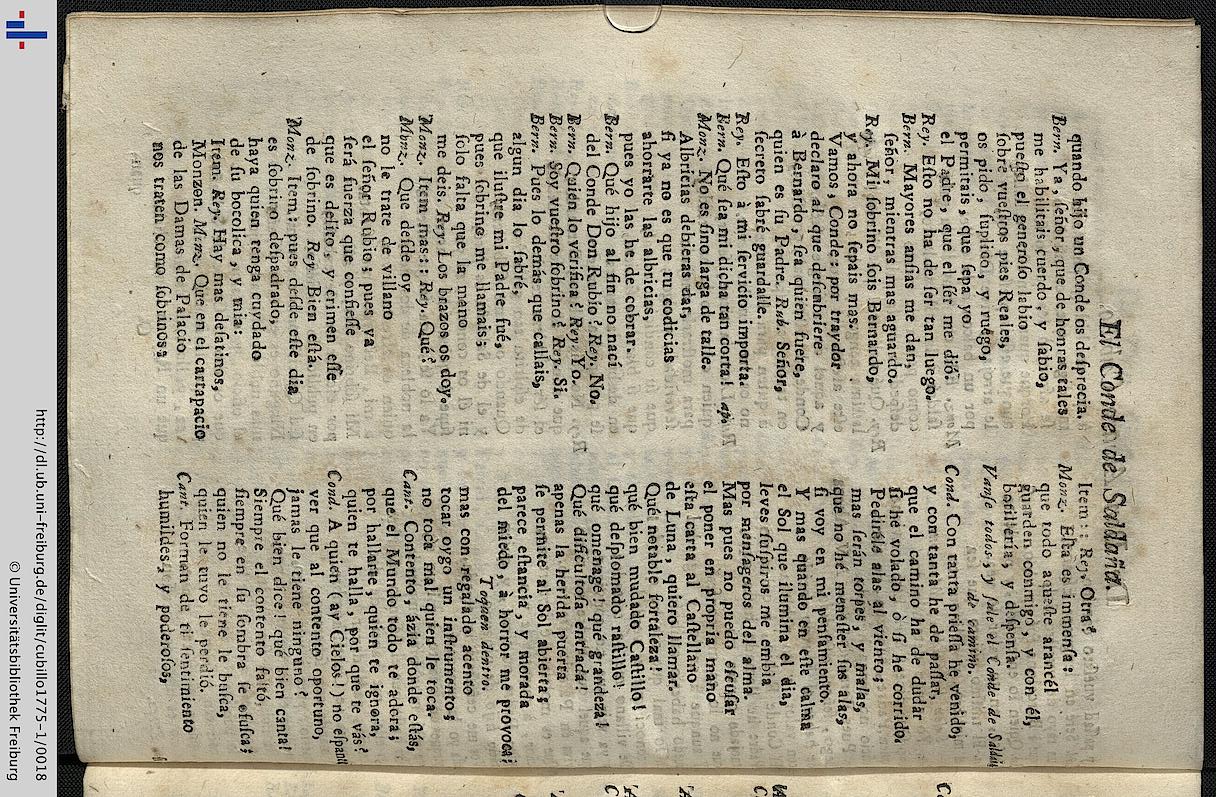 El Conde de Saldaña.
quando hijo un Conde os desprecia.
Bern. Ya, señor, que de honras tales
me habilitais cuerdo, y sabio,
puesto el generoso labio
sobre vuestros pies Reales,
os pido, suplico, y ruego,
permitais, que sepa yo
el Padre, que el sér me dió.
Rey. Esto no ha de ser tan luego.
Bern. Mayores ansias me dan,
señor, mientras mas aguardo.
Rey. Mi sobrino sois Bernardo,
y ahora no sepais mas.
Vamos, Conde: por traydor
declaro al que descubriere
à Bernardo, sea quien fuere,
quien es su Padre. Rub. Señor,
secreto sabré guardalle.
Rey. Esto à mi servicio importa.
Bern. Qué sea mi dicha tan corta! ap.
Monz. No es sino larga de talle.
Albricias debieras dar,
si ya no es que tu codicias
ahorrarte las albricias,
pues yo las he de cobrar.
Bern. Qué hijo al fin no nací
del Conde Don Rubio? Rey. No.
Bern. Quién lo verifica? Rey. Yo.
Bern. Soy vuestro sobrino? Rey. Si.
Bern. Pues lo demás que callais,
algun dia lo sabré,
que ilustre mi Padre fué,
pues sobrino me llamais;
solo falta que la mano
me deis. Rey. Los brazos os doy.
Monz. Item mas::: Rey. Qué?
Monz. Que desde oy
no le trate de villano
el señor Rubio; pues va
será fuerza que confiesse
que es delito, y crimen esse
de sobrino. Rey. Bien está.
Monz. Item: pues desde este dia
es sobrino despadrado,
haya quien tenga cuydado
de su bocolica, y mia:
Item. Rey. Hay mas desatinos,
Monzon. Monz. Que en el cartapacio
de las Damas de Palacio
nos traten como sobrinos.
Item:: Rey. Otra?
Monz. Esta es immensa:
que todo aqueste arancél
guarden conmigo, y con él,
botilleria, y despensa.
Vanse todos, y sale el Conde de Saldaña de camino.
Cond. Con tanta priessa he venido,
y con tanta he de passar,
que el camino ha de dudar
si he volado, ò si he corrido.
Pediréle alas al viento;
mas serán torpes, y malas,
que no hé menester sus alas,
si voy en mi pensamiento.
Y mas quando en este calma
el Sol que ilumina el dia,
leves suspiros me embia
por mensageros del alma.
Mas pues no puedo escusar
el poner en propria mano
esta carta al Castellano
de Luna, quiero llamar.
Qué notable fortaleza!
qué bien mudado Castillo!
qué desplomado rastillo!
qué omenage! qué grandeza!
Qué dificultosa entrada!
apenas la herida puerta
se permite al Sol abierta;
parece estancia, y morada
del miedo, à horror me provoca;
Toquen dentro.
mas con regalado acento
tocar oygo un instrumento;
no toca mal quien le toca.
Cant. Contento, ázia donde estás,
que el Mundo todo te adora;
por hallarte, quien te ignora,
quien te halla, por que te vás?
Cond. A quién (ay Cielos!) no espanta
ver que al contento oportuno,
jamas le tiene ninguno?
Qué bien dice! qué bien canta!
Siempre el contento faltó,
siempre en su sombra se ofusca;
quien no le tiene le busca,
quien le tuvo le perdió.
Cant. Forman de ti sentimiento
humildes, y poderosos,
http://dl.ub.uni-freiburg.de/diglit/cubillo1775-1/0018
© Universitätsbibliothek Freiburg